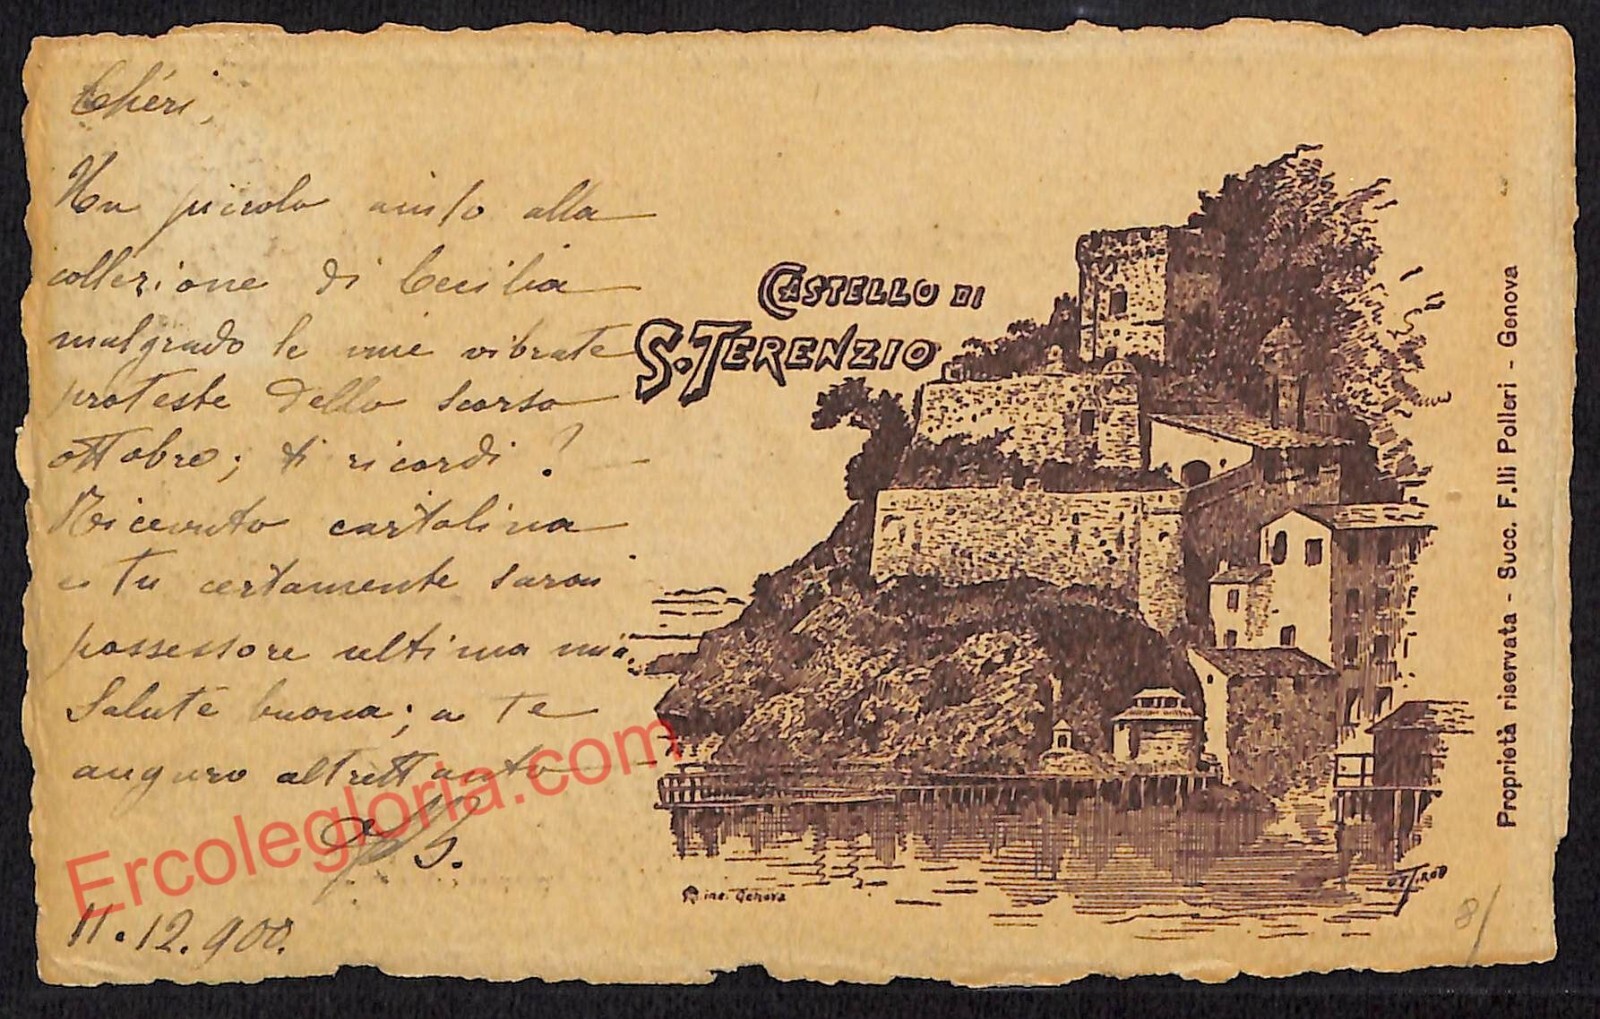 Chéri,
Un piccolo aiuto alla
collezione di Cecilia
malgrado le mie vibrate
proteste dello scorso
ottobre; ti ricordi?
Ricevuto cartolina
e tu certamente sarai
possessore ultima mia.
Salute buona; a te
auguro altrettanto
11.12.900.
CASTELLO DI
S. TERENZIO
Proprietà riservata - Succ. F.lli Polleri - Genova
Genova
8/
Ercolegloria.com